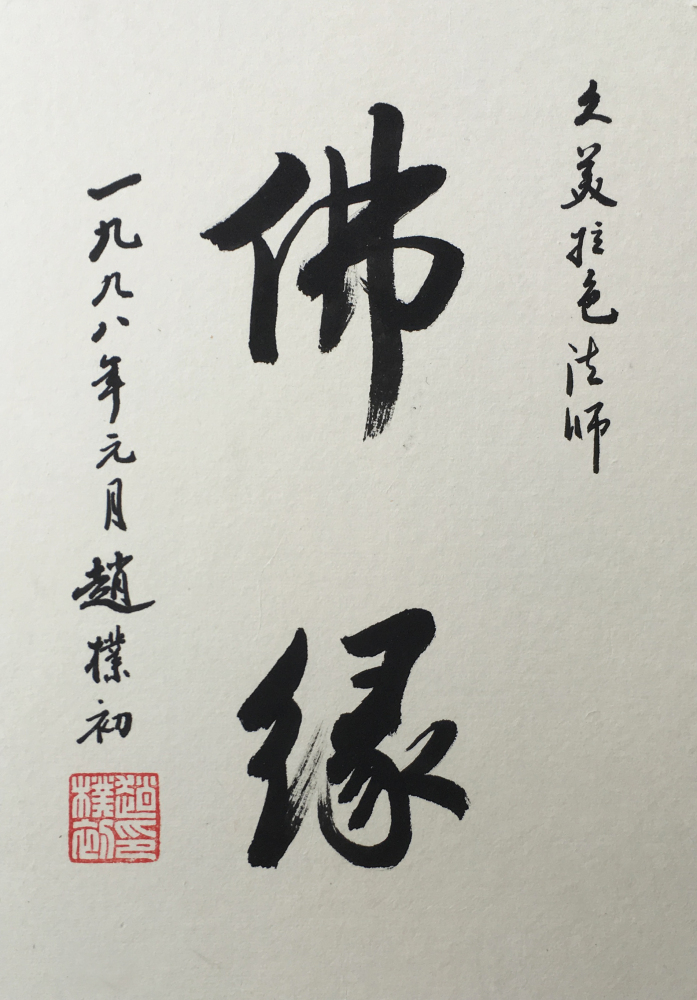 久美拉色法师
佛缘
一九九八年元月趙樸初
趙樸初印